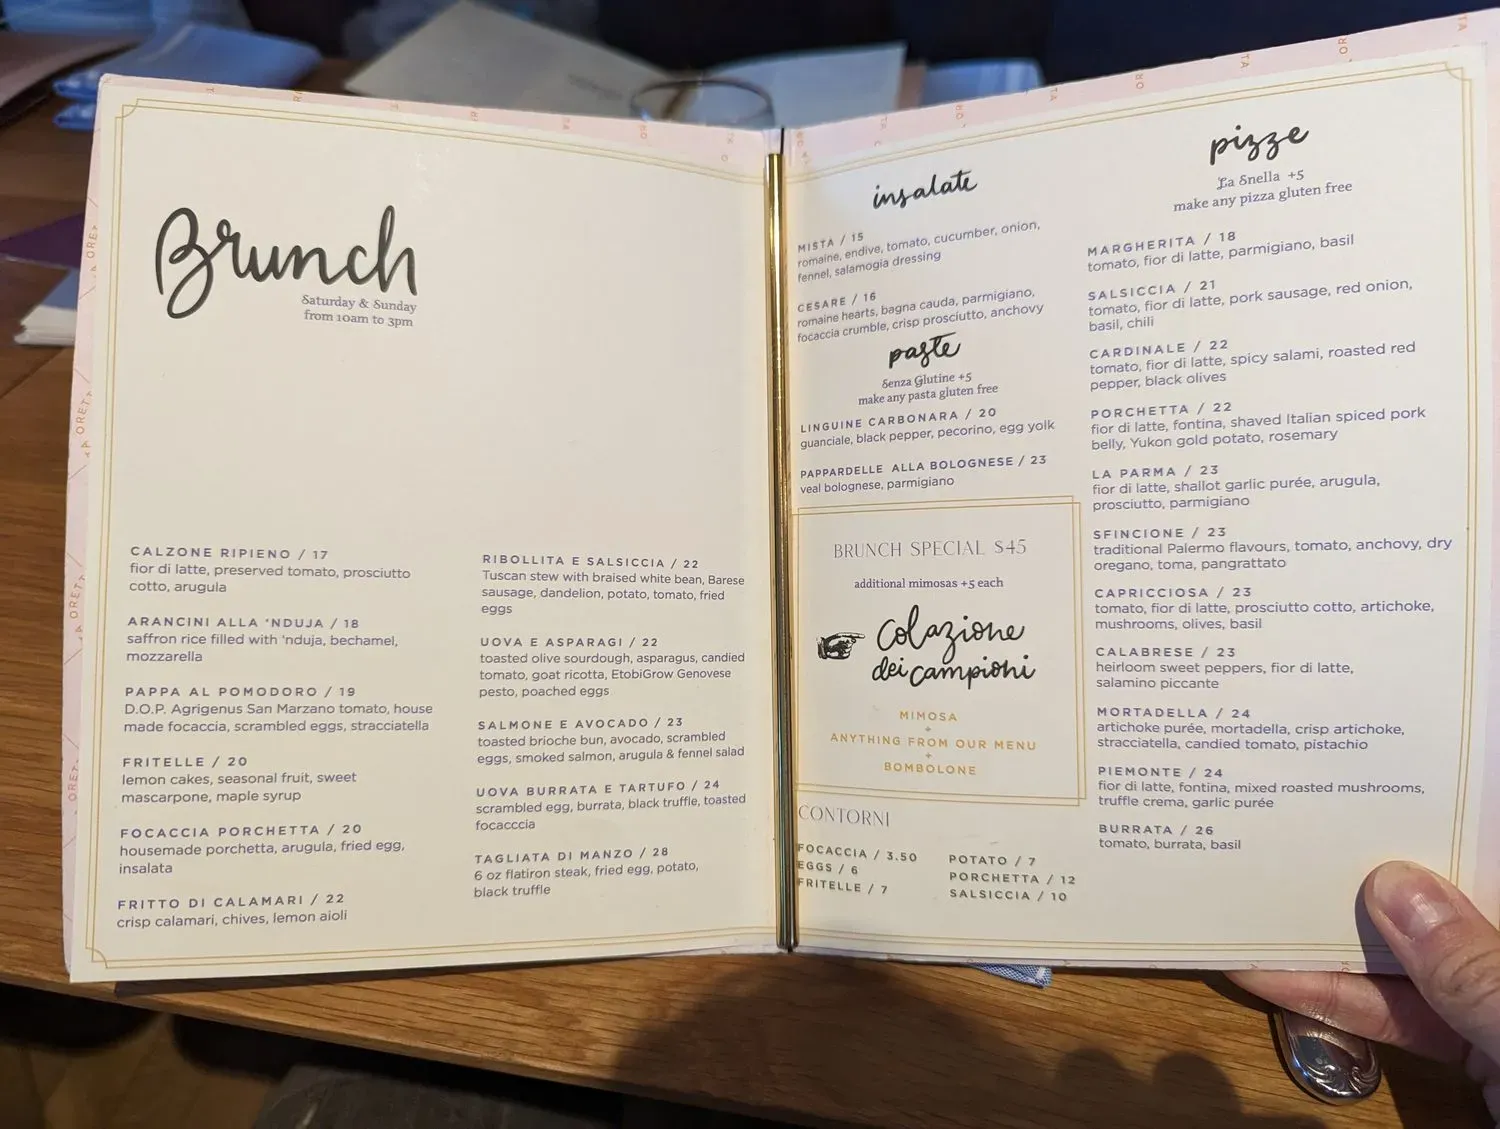 Brunch
Saturday & Sunday
from 10am to 3pm
CALZONE RIPIENO / 17
fior di latte, preserved tomato, prosciutto
cotto, arugula
ARANCINI ALLA 'NDUJA / 18
saffron rice filled with 'nduja, bechamel,
mozzarella
PAPPA AL POMODORO / 19
D.O.P. Agrigenus San Marzano tomato, house
made focaccia, scrambled eggs, stracciatella
FRITELLE / 20
lemon cakes, seasonal fruit, sweet
mascarpone, maple syrup
FOCACCIA PORCHETTA / 20
housemade porchetta, arugula, fried egg,
insalata
FRITTO DI CALAMARI / 22
crisp calamari, chives, lemon aioli
RIBOLLITA E SALSICCIA / 22
Tuscan stew with braised white bean, Barese
sausage, dandelion, potato, tomato, fried
eggs
UOVA E ASPARAGI / 22
toasted olive sourdough, asparagus, candied
tomato, goat ricotta, EtobiGrow Genovese
pesto, poached eggs
SALMONE E AVOCADO / 23
toasted brioche bun, avocado, scrambled
eggs, smoked salmon, arugula & fennel salad
UOVA BURRATA E TARTUFO / 24
scrambled egg, burrata, black truffle, toasted
focacccia
TAGLIATA DI MANZO / 28
6 oz flatiron steak, fried egg, potato,
black truffle
insalate
MISTA / 15
romaine, endive, tomato, cucumber, onion,
fennel, salamogia dressing
CESARE / 16
romaine hearts, bagna cauda, parmigiano,
focaccia crumble, crisp prosciutto, anchovy
paste
Senza Glutine +5
make any pasta gluten free
LINGUINE CARBONARA / 20
guanciale, black pepper, pecorino, egg yolk
PAPPARDELLE ALLA BOLOGNESE / 23
veal bolognese, parmigiano
BRUNCH SPECIAL $45
additional mimosas +5 each
colazione
dei campioni
MIMOSA
+
ANYTHING FROM OUR MENU
+
BOMBOLONE
CONTORNI
FOCACCIA / 3.50
EGGS / 6
FRITELLE / 7
POTATO / 7
PORCHETTA / 12
SALSICCIA / 10
pizze
La Snella +5
make any pizza gluten free
MARGHERITA / 18
tomato, fior di latte, parmigiano, basil
SALSICCIA / 21
tomato, fior di latte, pork sausage, red onion,
basil, chili
CARDINALE / 22
tomato, fior di latte, spicy salami, roasted red
pepper, black olives
PORCHETTA / 22
fior di latte, fontina, shaved Italian spiced pork
belly, Yukon gold potato, rosemary
LA PARMA / 23
fior di latte, shallot garlic purée, arugula,
prosciutto, parmigiano
SFINCIONE / 23
traditional Palermo flavours, tomato, anchovy, dry
oregano, toma, pangrattato
CAPRICCIOSA / 23
tomato, fior di latte, prosciutto cotto, artichoke,
mushrooms, olives, basil
CALABRESE / 23
heirloom sweet peppers, fior di latte,
salamino piccante
MORTADELLA / 24
artichoke purée, mortadella, crisp artichoke,
stracciatella, candied tomato, pistachio
PIEMONTE / 24
fior di latte, fontina, mixed roasted mushrooms,
truffle crema, garlic purée
BURRATA / 26
tomato, burrata, basil